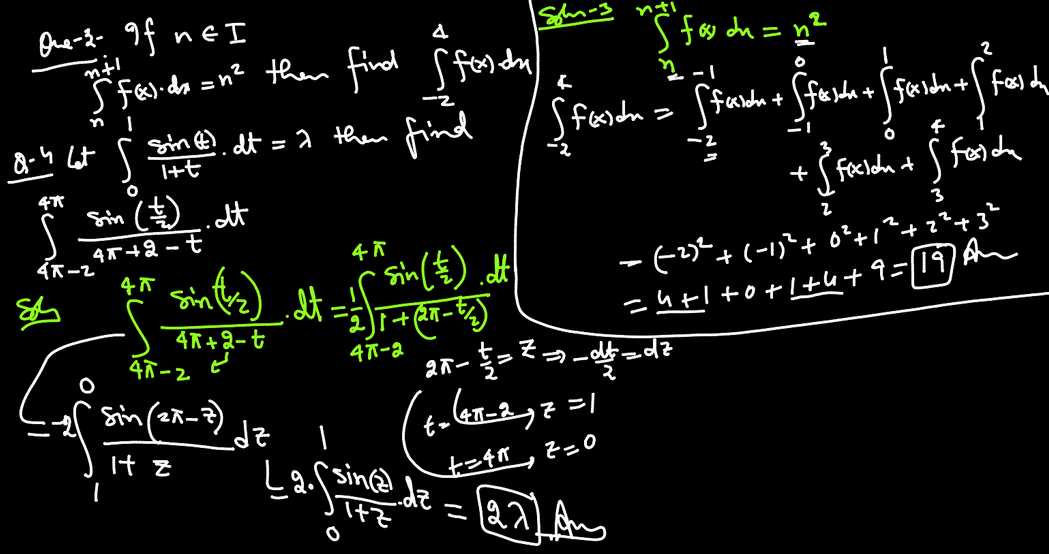 Que-3- If n ∈ I
∫_n^{n+1} f(x)·dx = n² then find ∫_{-2}^{4} f(x)·dx
Q-4 Let ∫_0^1 sin(t)/(1+t) · dt = λ then find
∫_{4π-2}^{4π} sin(t/2)/(4π+2-t) · dt
Soln ∫_{4π-2}^{4π} sin(t/2)/(4π+2-t) · dt = 1/2 ∫_{4π-2}^{4π} sin(t/2)/(1+(2π-t/2)) · dt
2π - t/2 = z ⇒ -dt/2 = dz
t = 4π-2 → z = 1
t = 4π → z = 0
= -2 ∫_1^0 sin(2π-z)/(1+z) dz
= 2· ∫_0^1 sin(z)/(1+z) · dz = 2λ Ans
Soln-3 ∫_n^{n+1} f(x) dx = n²
∫_{-2}^{4} f(x) dx = ∫_{-2}^{-1} f(x) dx + ∫_{-1}^{0} f(x) dx + ∫_0^1 f(x) dx + ∫_1^2 f(x) dx
+ ∫_2^3 f(x) dx + ∫_3^4 f(x) dx
= (-2)² + (-1)² + 0² + 1² + 2² + 3²
= 4+1+0+1+4+9 = 19 Ans